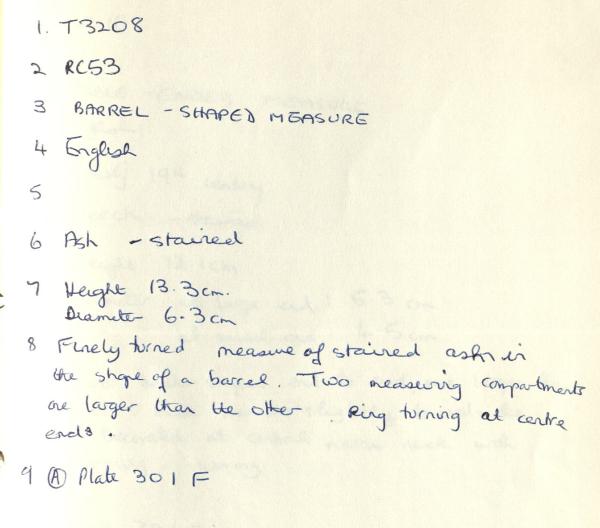 1. T3208
2 RC53
3 BARREL - SHAPED MEASURE
4 English
5
6 Ash - stained
7 Height 13.3cm.
Diameter 6.3cm
8 Finely turned measure of stained ash in
the shape of a barrel. Two measuring compartments
one larger than the other. Ring turning at centre
ends.
9 Ⓐ Plate 301 F